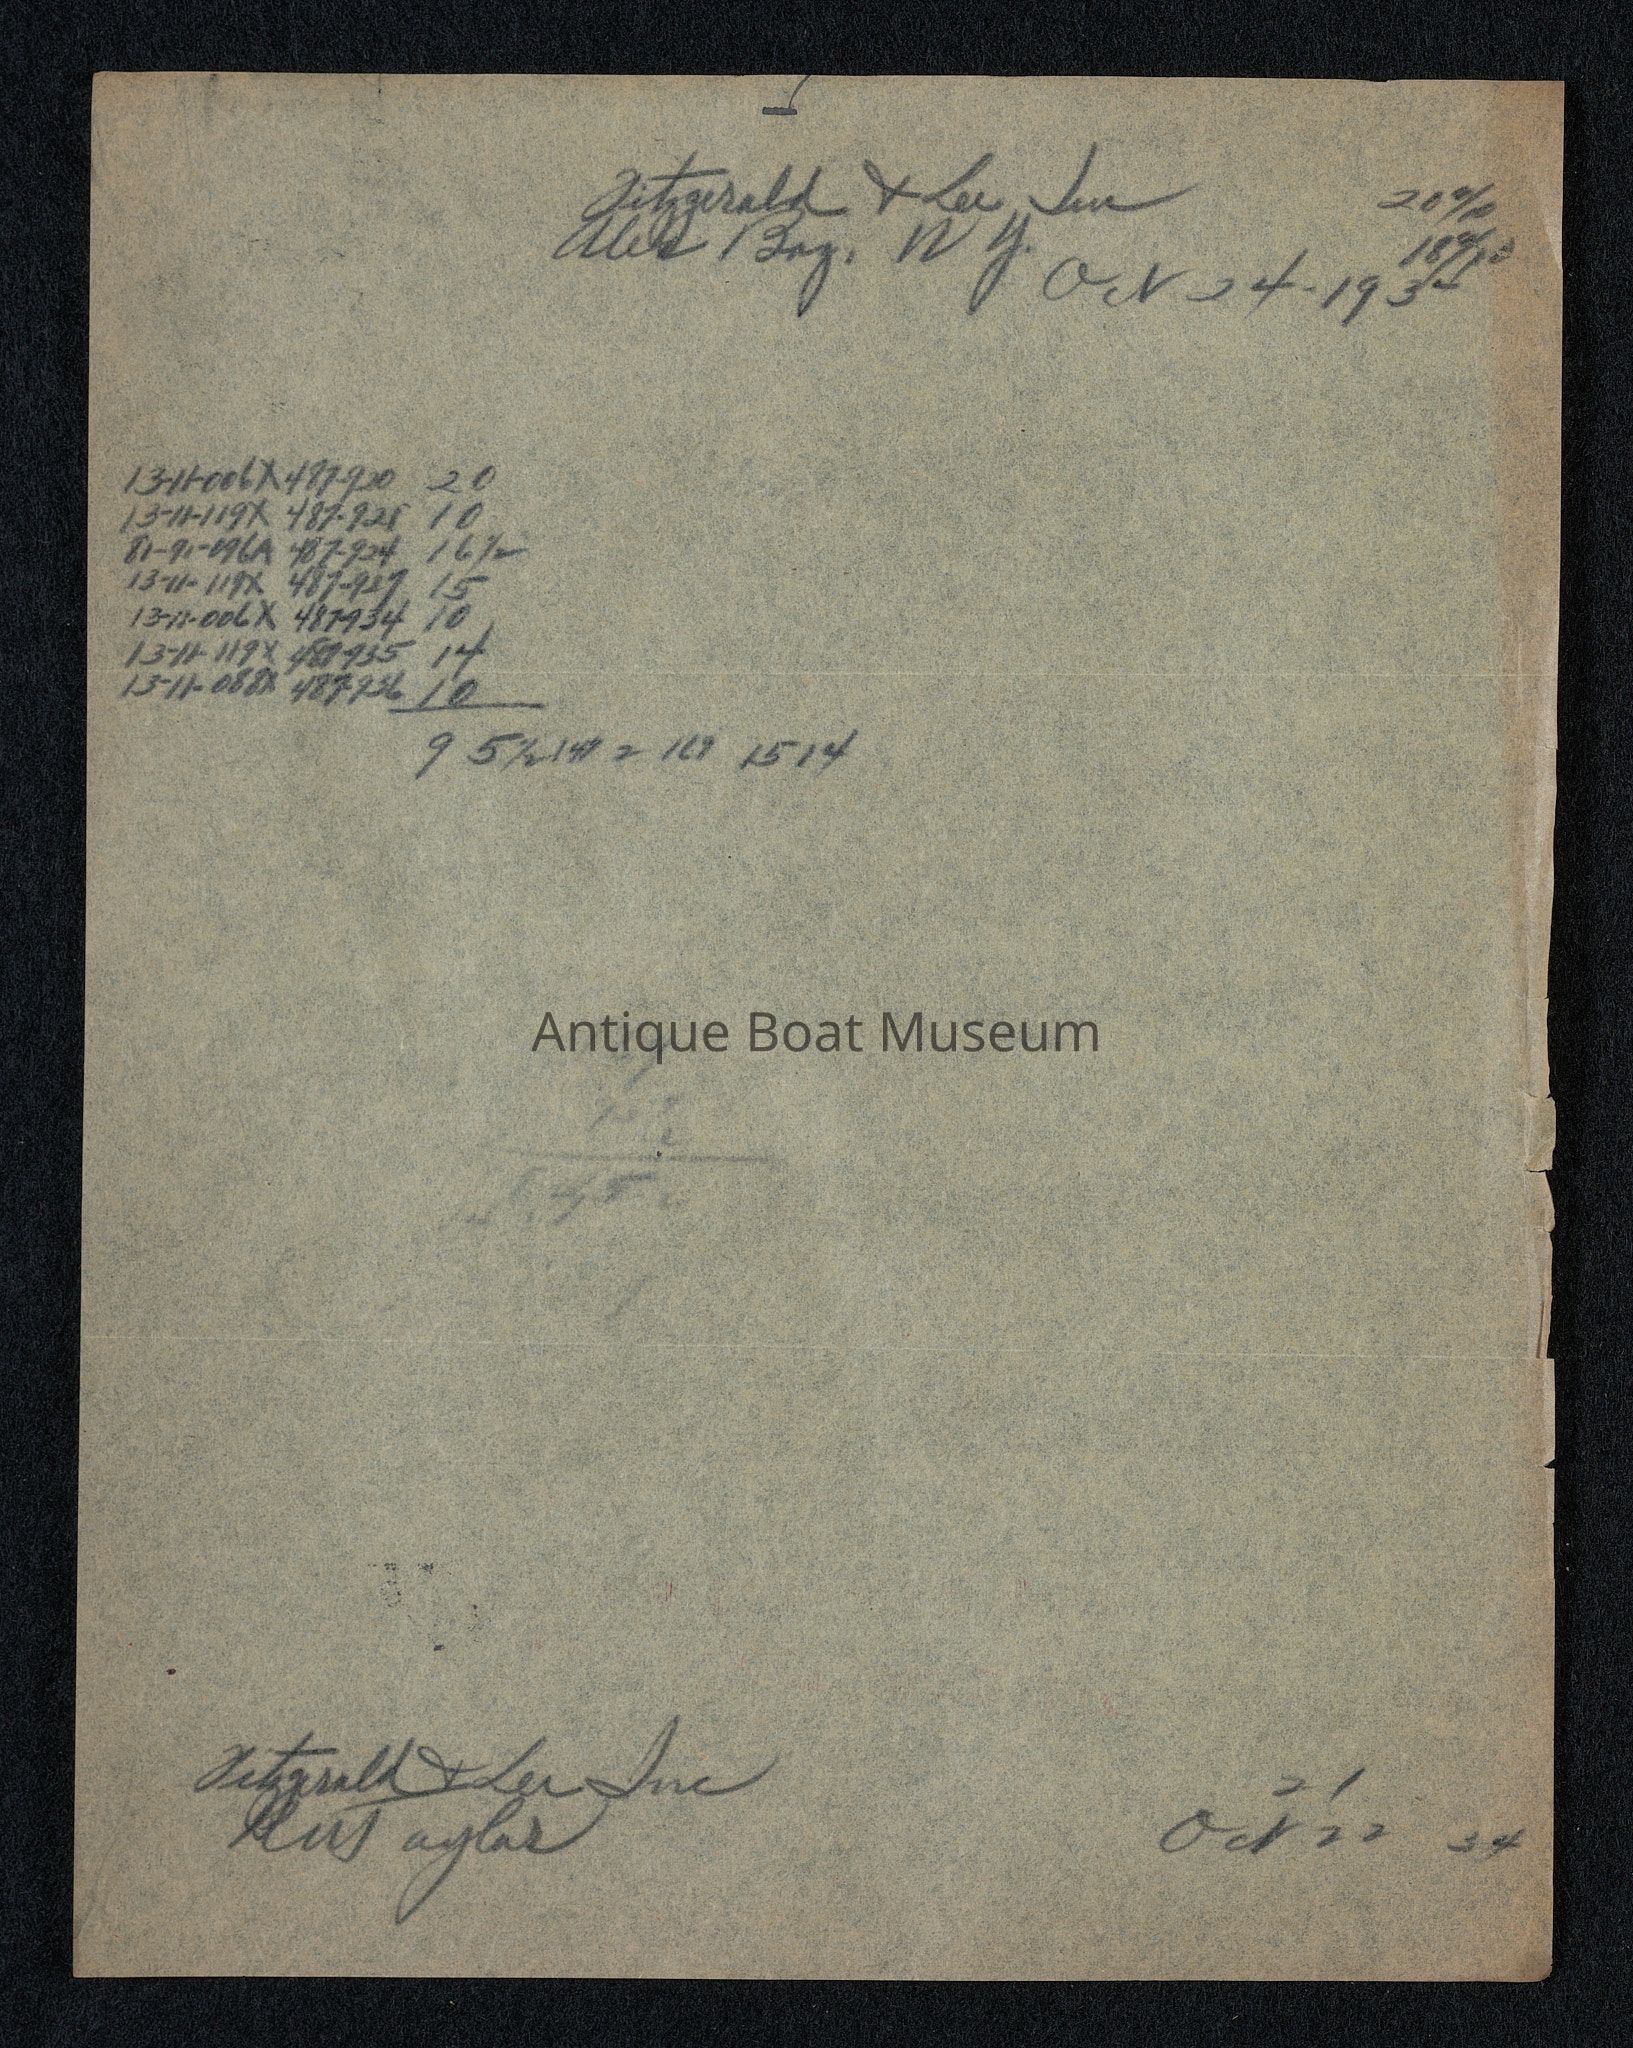 Fitzgerald & Lee Inc
20%10
Alex Bay, N Y.
18%10
Oct 24-1934
13-11-006X 487-920 20
13-11-119X 487-921 10
81-91-096A 487-924 16½
13-11-119X 487-927 15
13-11-006X 487-934 10
13-11-119X 487-935 14
13-11-088X 487-936 10
95½ 15 14
Antique Boat Museum
Fitzgerald & Lee Inc
21
Taylor
Oct 22 34